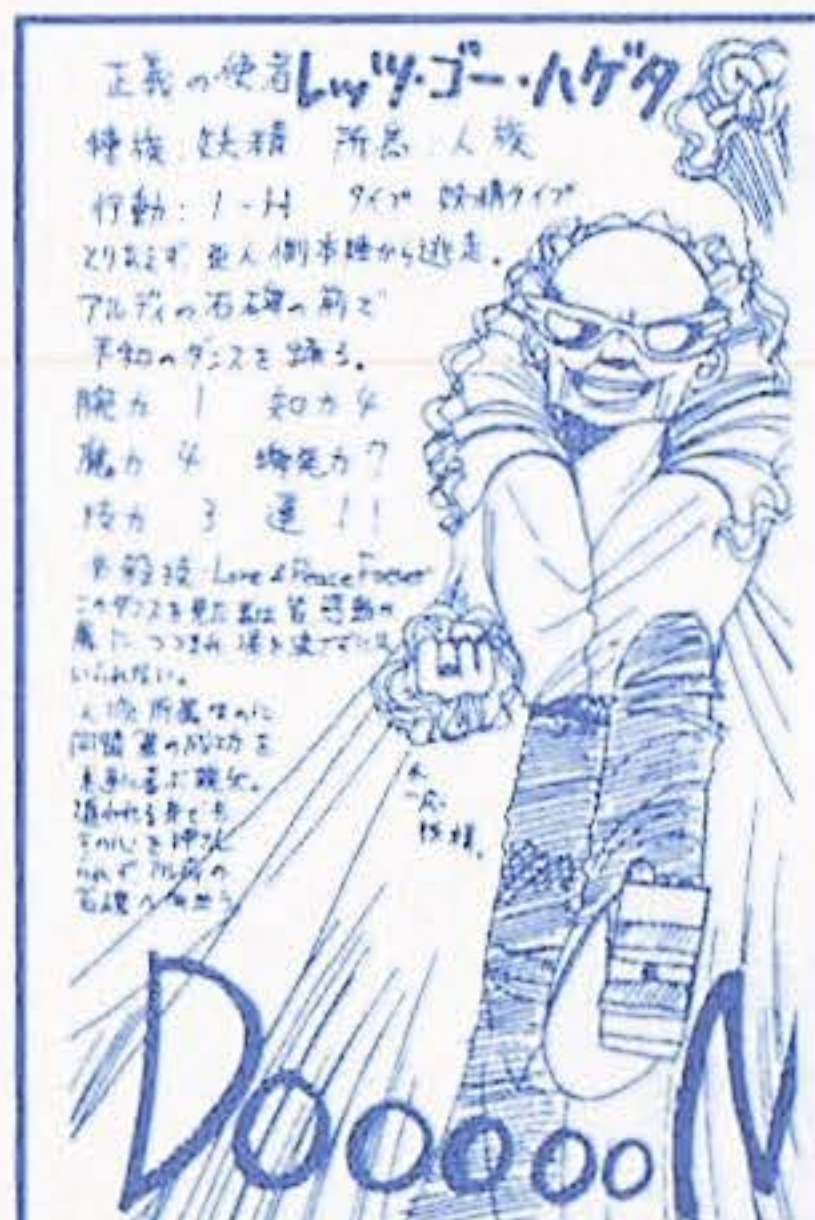 正義の使者 レッツ・ゴー・ハゲタ
種族：妖精 所属：人族
行動：1-H タイプ 妖精タイプ
とりあえず 亜人側本陣から逃走。
アルディの石碑の前で
平和のダンスを踊る。
腕力 1 知力 4
魔力 4 瞬発力 7
技力 3 運 11
必殺技：Love & Peace Forever
このダンスを見た者は皆 感動の
につつまれ 涙を流さずには
いられない。
人族所属なのに
同盟 の成功を
に喜ぶ
追われる身でも
その心を
られず アルディの
石碑へ向かう
一応
DOOOOON